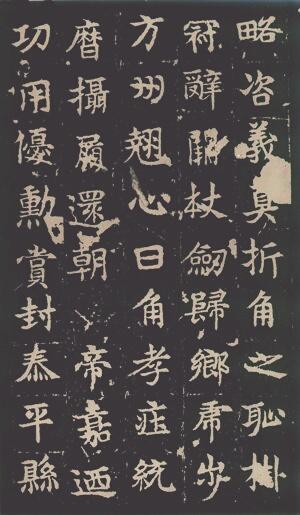 略咨義臭折角之恥掛
冠辭闕杖劒歸鄉虎步
方州翹心日角孝莊統
曆攝履還朝　帝嘉迺
功用優勳賞封泰平縣